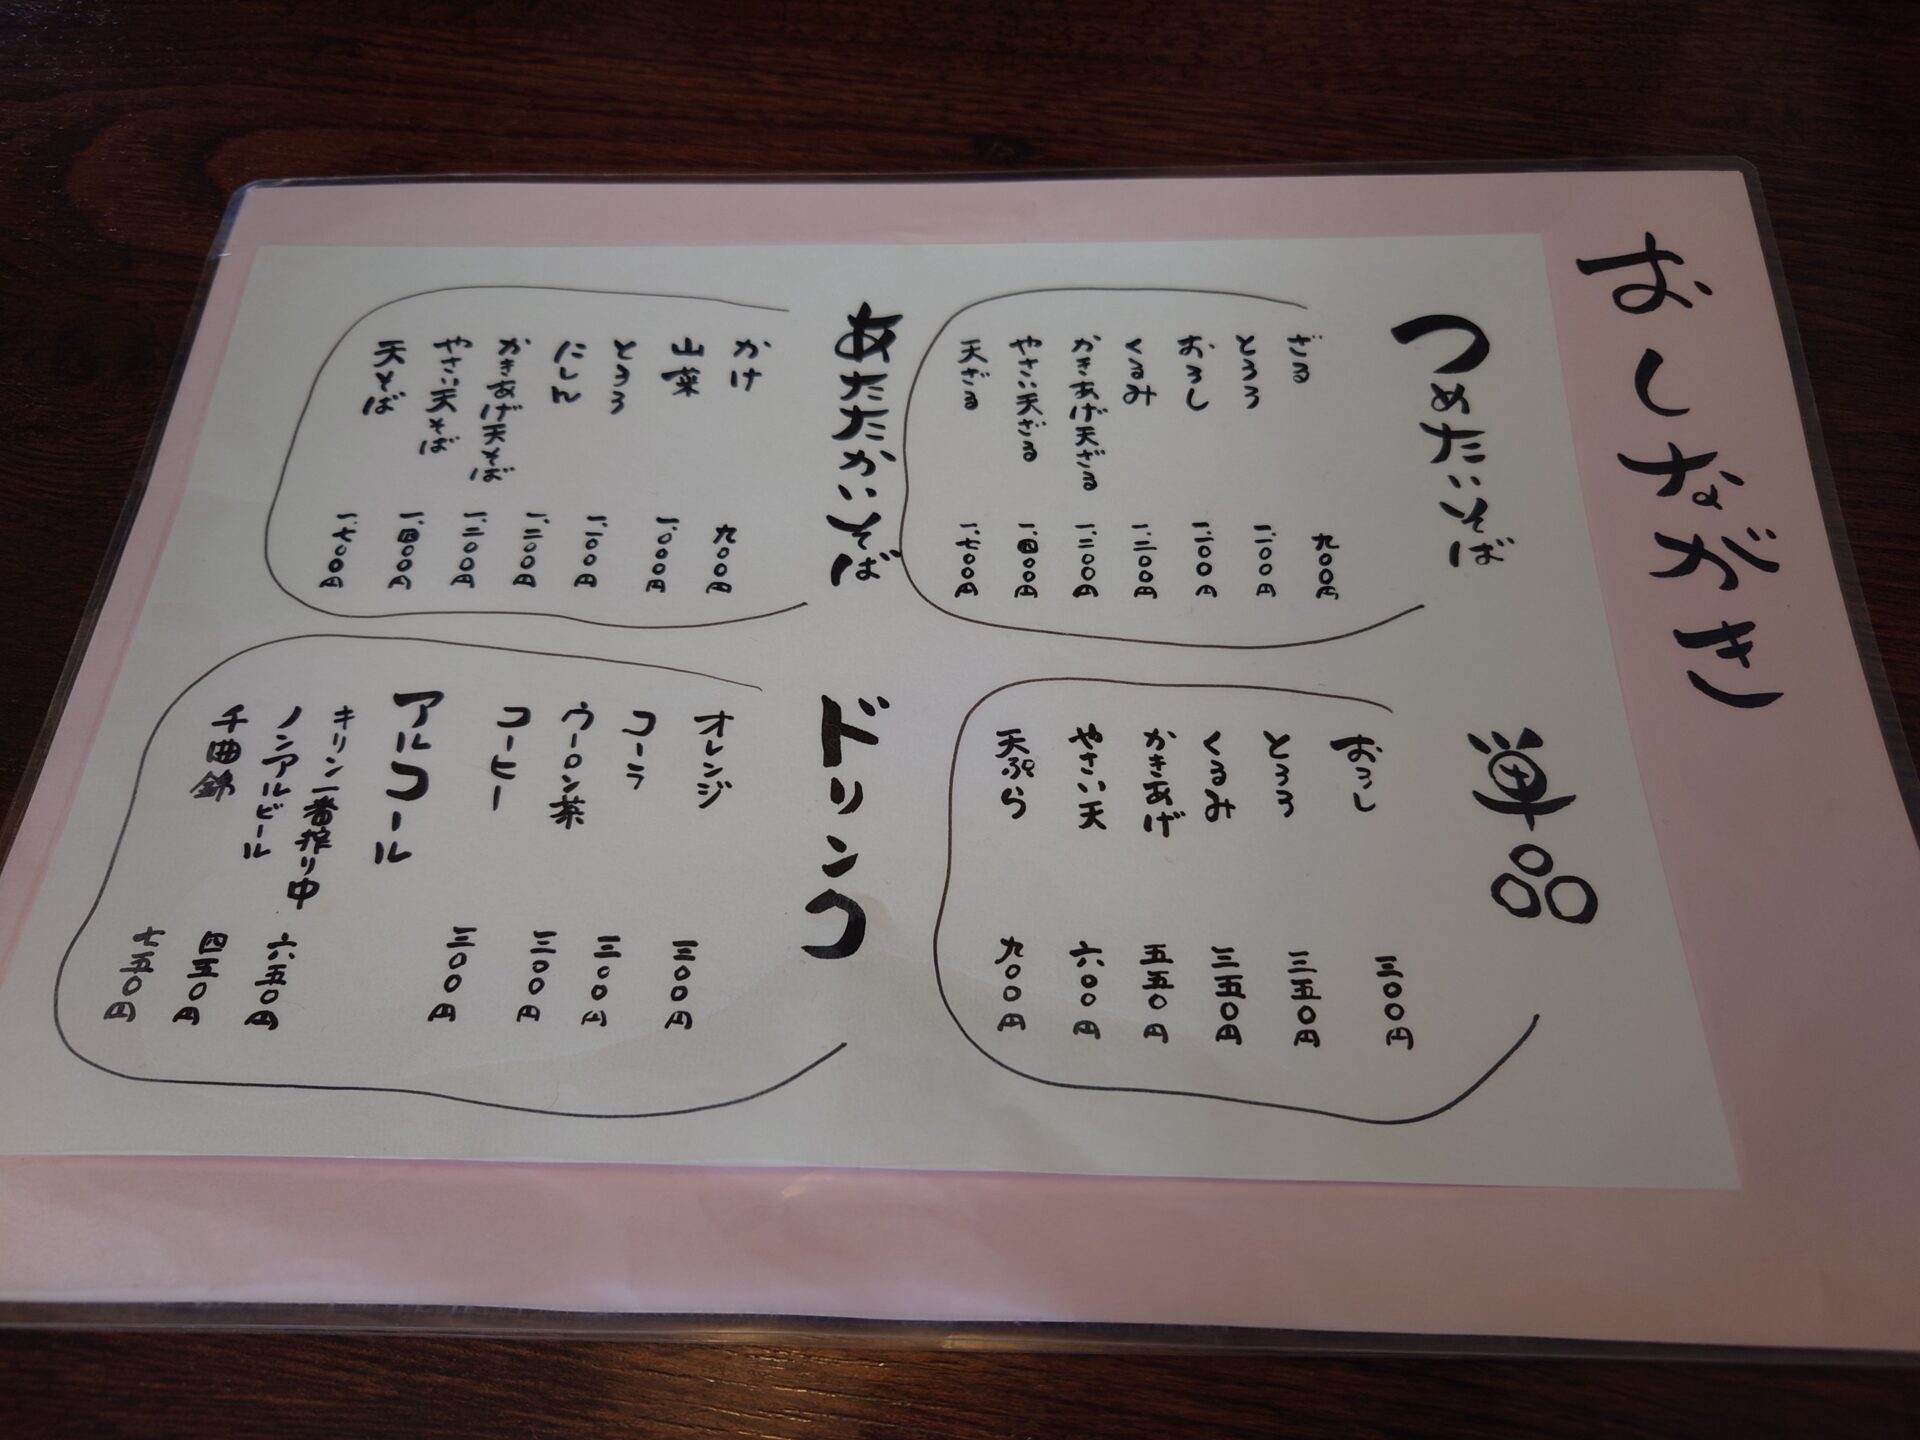 おしながき
つめたいそば
ざる 九〇〇円
とろろ 一、二〇〇円
おろし 一、二〇〇円
くるみ 一、三〇〇円
かきあげ天ざる 一、三〇〇円
やさい天ざる 一、四〇〇円
天ざる 一、七〇〇円
あたたかいそば
かけ 九〇〇円
山菜 一、〇〇〇円
とろろ 一、二〇〇円
にしん 一、三〇〇円
かきあげ天そば 一、三〇〇円
やさい天そば 一、四〇〇円
天そば 一、七〇〇円
単品
おろし 三〇〇円
とろろ 三五〇円
くるみ 三五〇円
かきあげ 五五〇円
やさい天 六〇〇円
天ぷら 九〇〇円
ドリンク
オレンジ 三〇〇円
コーラ 三〇〇円
ウーロン茶 三〇〇円
コーヒー 三〇〇円
アルコール
キリン一番搾り中 六五〇円
ノンアルビール 四五〇円
千曲錦 七五〇円